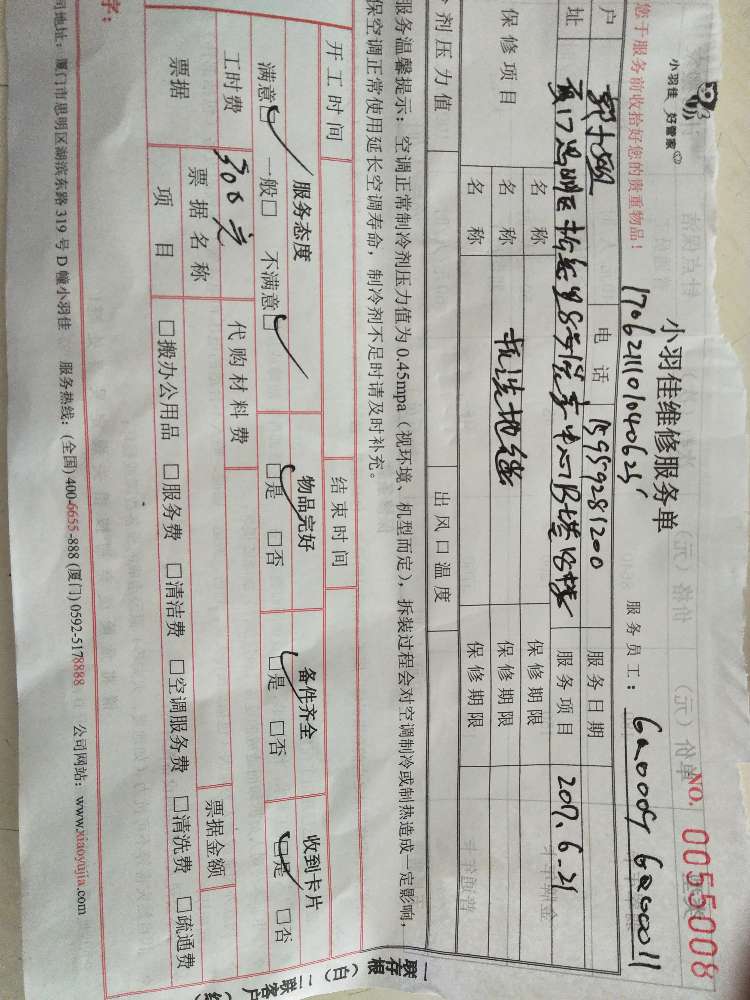 小羽佳 好管家
小羽佳维修服务单
NO. 0055008
您于服务前收拾好您的贵重物品!
1706211101040625
服务员工:
户
电话 15959281200
服务日期
2017.6-21
址
服务项目
保修项目
名称
保修期限
名称
机洗地毯
保修期限
名称
保修期限
剂压力值
出风口温度
服务温馨提示:空调正常制冷剂压力值为0.45mpa(视环境、机型而定),拆装过程会对空调制冷或制热造成一定影响,
保空调正常使用延长空调寿命,制冷剂不足时请及时补充。
开工时间
结束时间
服务态度
物品完好
备件齐全
收到卡片
满意□ 一般□ 不满意□
□是 □否
□是 □否
□是 □否
工时费
300元
代购材料费
票据
票据名称
票据金额
项目
□搬办公用品 □服务费 □清洁费 □空调服务费 □清洗费 □疏通费
司地址:厦门市思明区湖滨东路319号D幢小羽佳 服务热线:(全国)400-6655-888 (厦门)0592-5178888 公司网站:www.xiaoyujia.com
字:
一联存根(白) 二联客户